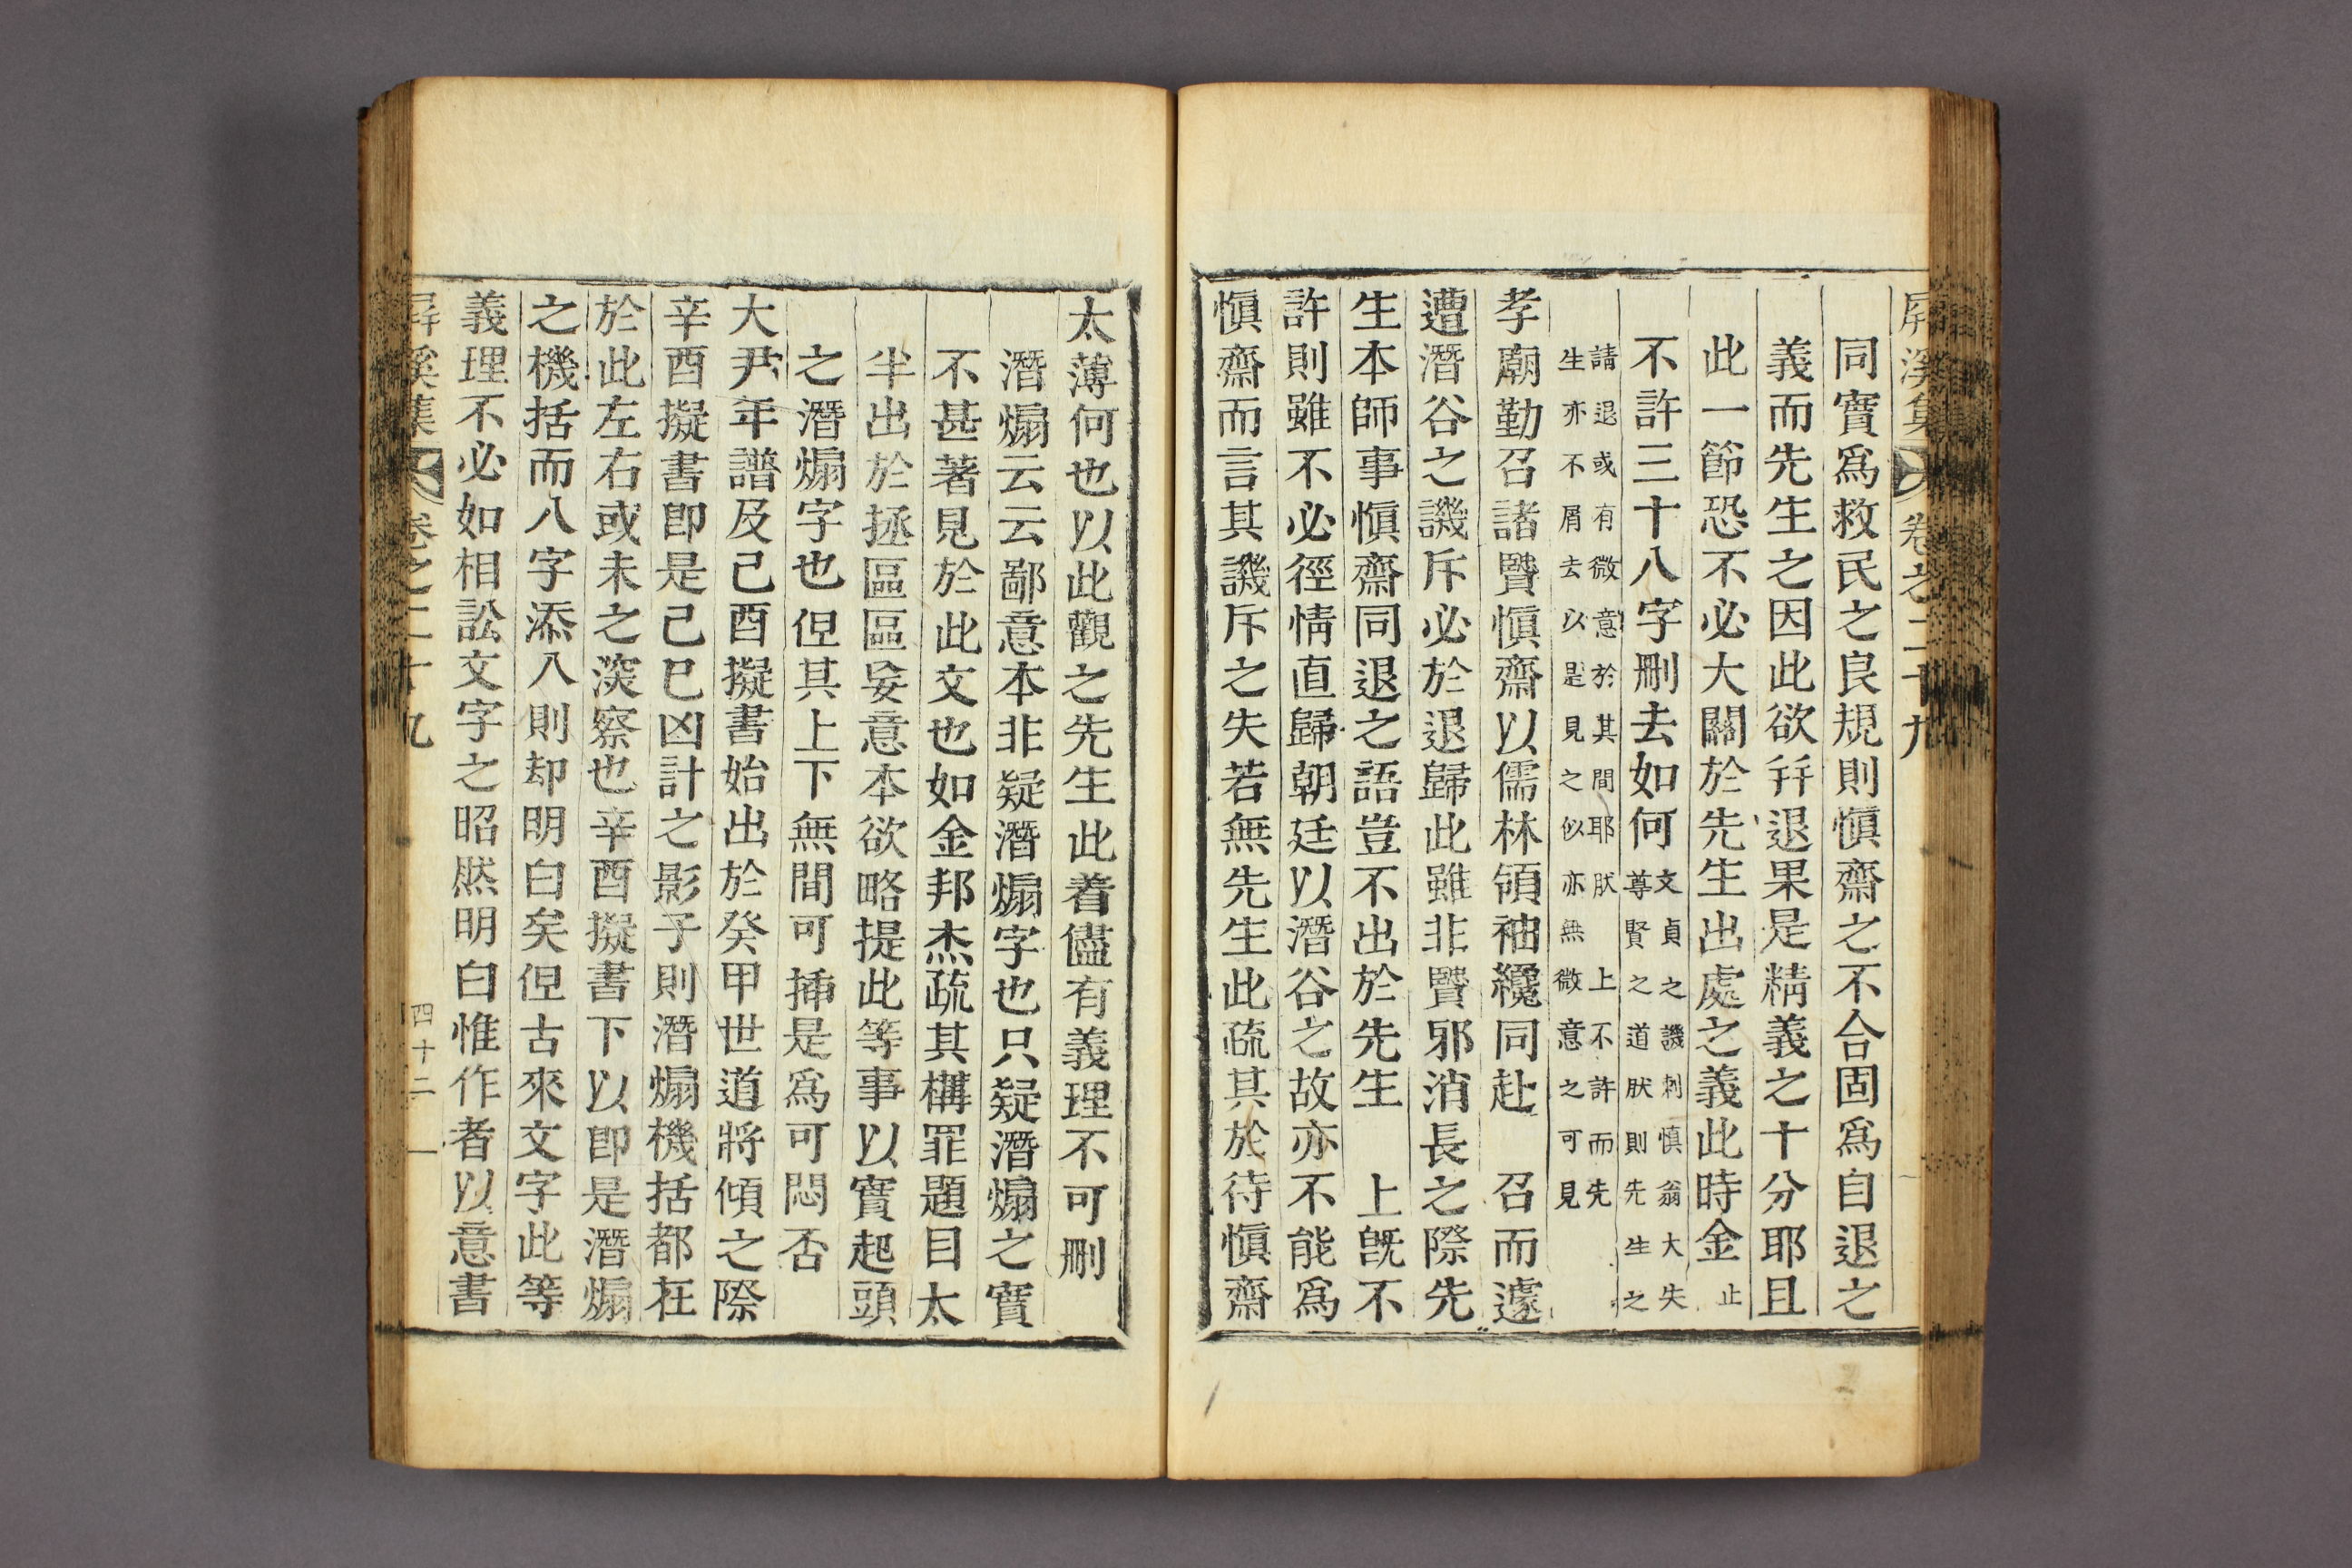 屛溪集 卷之二十九
同實爲救民之良規則愼齋之不合固爲自退之
義而先生之因此欲幷退果是精義之十分耶且
此一節恐不必大關於先生出處之義此時金止
不許三十八字刪去如何文貞之譏刺愼翁大失
尊賢之道肰則先生之
請退或有微意於其間耶肰上不許而先
生亦不屑去以是見之似亦無微意之可見
孝廟勤召諸賢愼齋以儒林領袖纔同赴 召而遽
遭潛谷之譏斥必於退歸此雖非賢邪消長之際先
生本師事愼齋同退之語豈不出於先生 上旣不
許則雖不必徑情直歸朝廷以潛谷之故亦不能爲
愼齋而言其譏斥之失若無先生此疏其於待愼齋
太薄何也以此觀之先生此着儘有義理不可刪
潛煽云云鄙意本非疑潛煽字也只疑潛煽之實
不甚著見於此文也如金邦杰疏其構罪題目太
半出於拯區區妄意本欲略提此等事以實起頭
之潛煽字也但其上下無間可揷是爲可悶否
大尹年譜及己酉擬書始出於癸甲世道將傾之際
辛酉擬書卽是己巳凶計之影子則潛煽機括都在
於此左右或未之深察也辛酉擬書下以卽是潛煽
之機括而八字添入則却明白矣但古來文字此等
義理不必如相訟文字之昭然明白惟作者以意書
屛溪集 卷之二十九 四十二 一